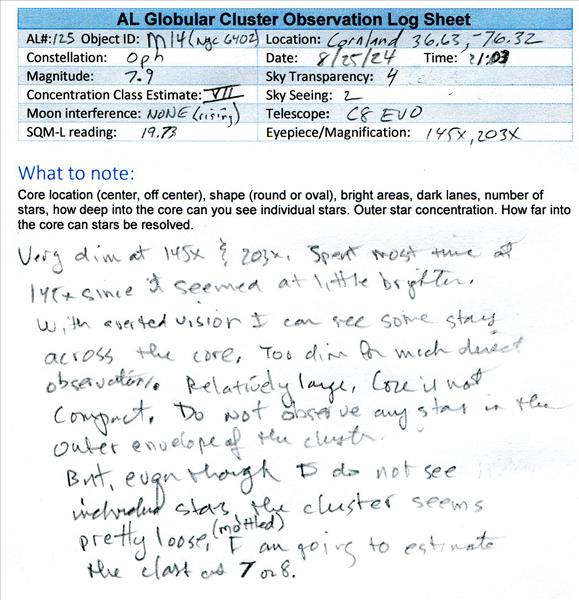 AL Globular Cluster Observation Log Sheet
AL#:125 Object ID: M14 (Ngc 6402) Location: Cornland 36.63, -76.32
Constellation: Oph Date: 8/25/24 Time: 21:03
Magnitude: 7.9 Sky Transparency: 4
Concentration Class Estimate: VII Sky Seeing: 2
Moon interference: NONE (rising) Telescope: C8 EVO
SQM-L reading: 19.73 Eyepiece/Magnification: 145x, 203x
What to note:
Core location (center, off center), shape (round or oval), bright areas, dark lanes, number of
stars, how deep into the core can you see individual stars. Outer star concentration. How far into
the core can stars be resolved.
Very dim at 145x & 203x. Spent most time at
145x since it seemed at little brighter.
With averted vision I can see some stars
across the core. Too dim for much direct
observation. Relatively large, Core is not
compact. Do not observe any star in the
outer envelope of the cluster.
But, even though I do not see
individual stars, the cluster seems
pretty loose, (mottled) I am going to estimate
the class at 7 or 8.